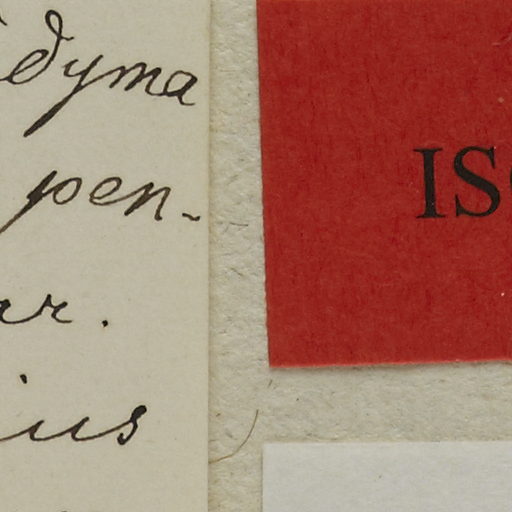 dyma
pen-
ar.
ius
IS